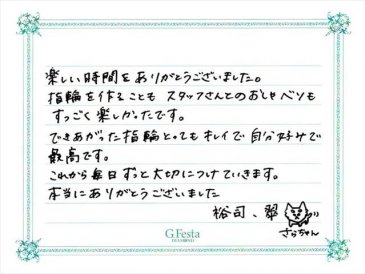 楽しい時間をありがとうございました。
指輪を作ることも スタッフさんとのおしゃべりも
すっごく楽しかったです。
できあがった指輪とってもキレイで自分好みで
最高です。
これから毎日ずっと大切につけていきます。
本当にありがとうございました
裕司、翠
さらちゃん
G.Festa